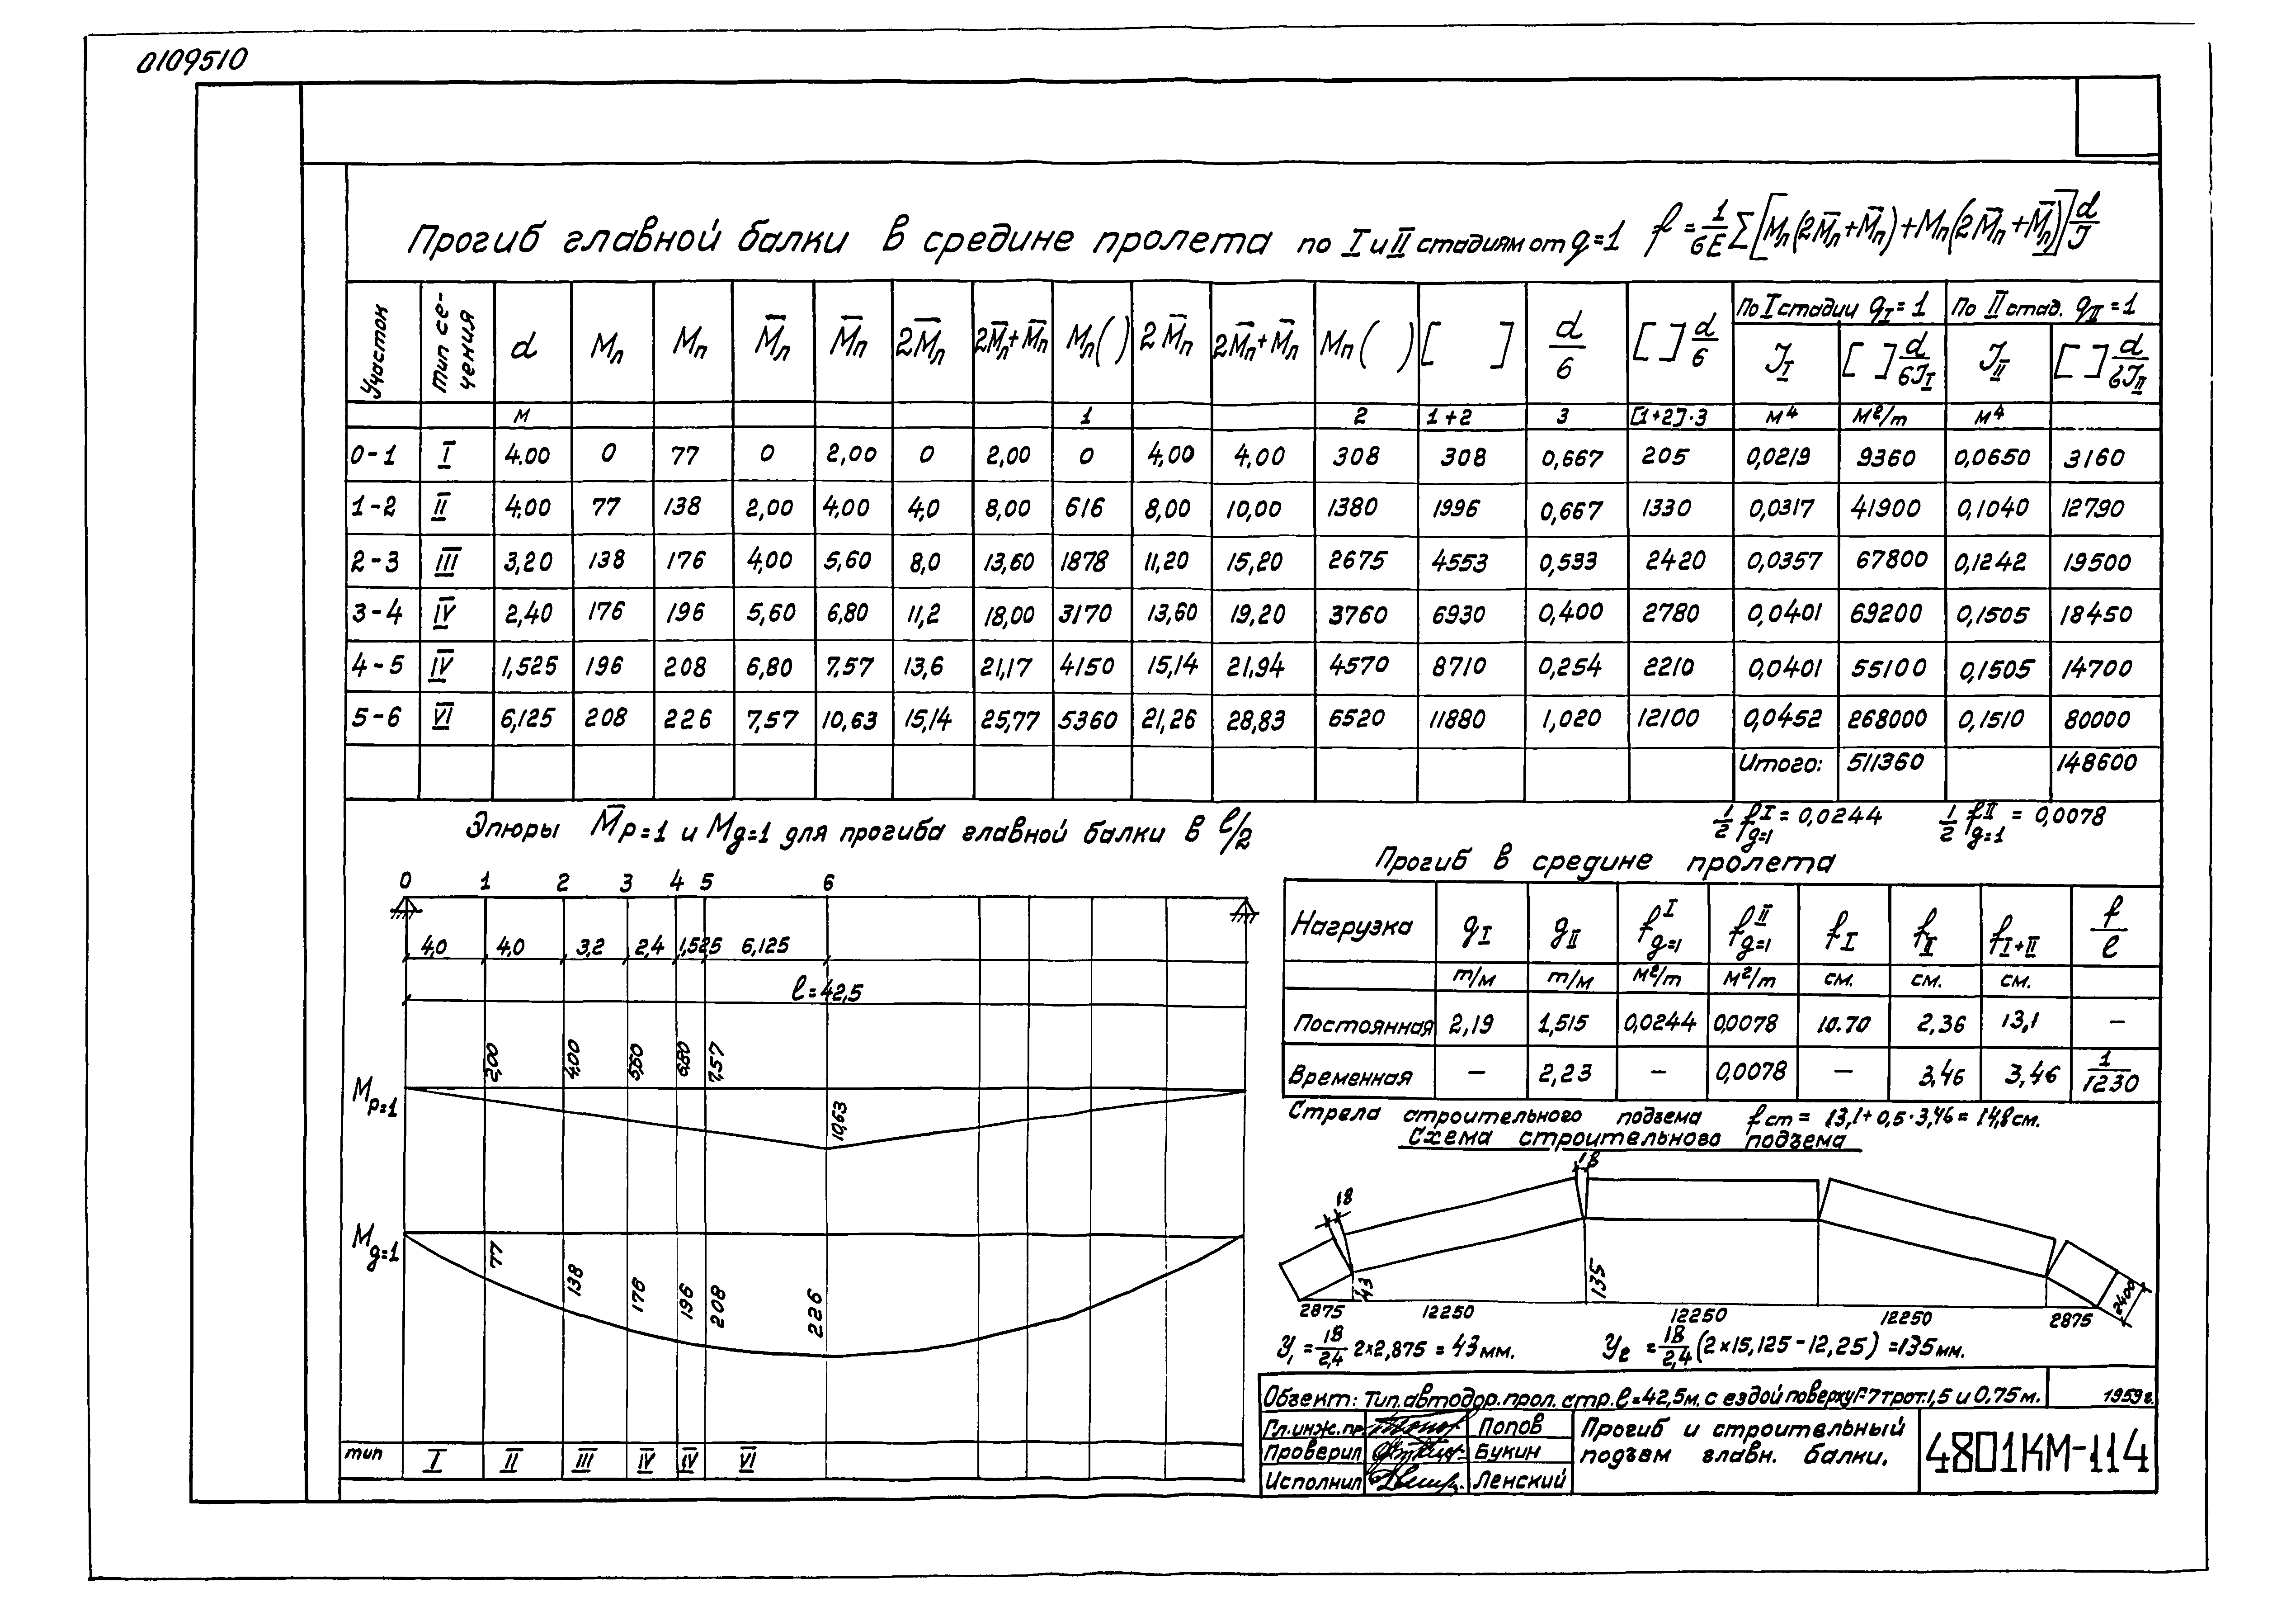 0109510
Прогиб главной балки в средине пролета по I и II стадиям от g=1 f = 1/6E Σ[Mл(2M̅л+M̅п)+Mп(2M̅п+M̅л)] d/J
Участок | Тип сечения | d | Mл | Mп | M̅л | M̅п | 2M̅л | 2M̅л+M̅п | Mл( ) | 2M̅п | 2M̅п+M̅л | Mп( ) | [ ] | d/6 | [ ] d/6 | По I стадии gI=1 | По II стад. gII=1
JI | [ ] d/6JI | JII | [ ] d/6JII
м | 1 | 2 | 1+2 | 3 | [1+2]·3 | м4 | м2/т | м4
0-1 I 4.00 0 77 0 2,00 0 2,00 0 4,00 4,00 308 308 0,667 205 0,0219 9360 0,0650 3160
1-2 II 4.00 77 138 2,00 4,00 4,0 8,00 616 8,00 10,00 1380 1996 0,667 1330 0,0317 41900 0,1040 12790
2-3 III 3,20 138 176 4,00 5,60 8,0 13,60 1878 11,20 15,20 2675 4553 0,533 2420 0,0357 67800 0,1242 19500
3-4 IV 2,40 176 196 5,60 6,80 11,2 18,00 3170 13,60 19,20 3760 6930 0,400 2780 0,0401 69200 0,1505 18450
4-5 IV 1,525 196 208 6,80 7,57 13,6 21,17 4150 15,14 21,94 4570 8710 0,254 2210 0,0401 55100 0,1505 14700
5-6 VI 6,125 208 226 7,57 10,63 15,14 25,77 5360 21,26 28,83 6520 11880 1,020 12100 0,0452 268000 0,1510 80000
Итого: 511360 148600
1/2 fIg=1 = 0,0244 1/2 fIIg=1 = 0,0078
Эпюры M̅р=1 и Mg=1 для прогиба главной балки в l/2
0 1 2 3 4 5 6
4,0 4,0 3,2 2,4 1,525 6,125
l=42,5
Mр=1
2,00 4,00 5,60 6,80 7,57 10,63
Mg=1
77 138 176 196 208 226
тип I II III IV IV VI
Прогиб в средине пролета
Нагрузка | gI | gII | fIg=1 | fIIg=1 | fI | fII | fI+II | f/l
т/м т/м м2/т м2/т см. см. см.
Постоянная 2,19 1,515 0,0244 0,0078 10.70 2,36 13,1 –
Временная – 2,23 – 0,0078 – 3,46 3,46 1/1230
Стрела строительного подъема fст = 13,1+0,5·3,46=14,8см.
Схема строительново подъема
18 18
43 135 2400
2875 12250 12250 12250 2875
У1 = 18/2,4 2×2,875 = 43мм. У2 = 18/2,4 (2×15,125-12,25) =135мм.
Объект: Тип.автодор.прол.стр.l=42,5м. с ездой поверху Г-7 трот.1,5 и 0.75 м. 1959г.
Гл.инж.пр. Попов
Проверил Букин
Исполнил Ленский
Прогиб и строительный
подъем главн. балки.
4801КМ-114